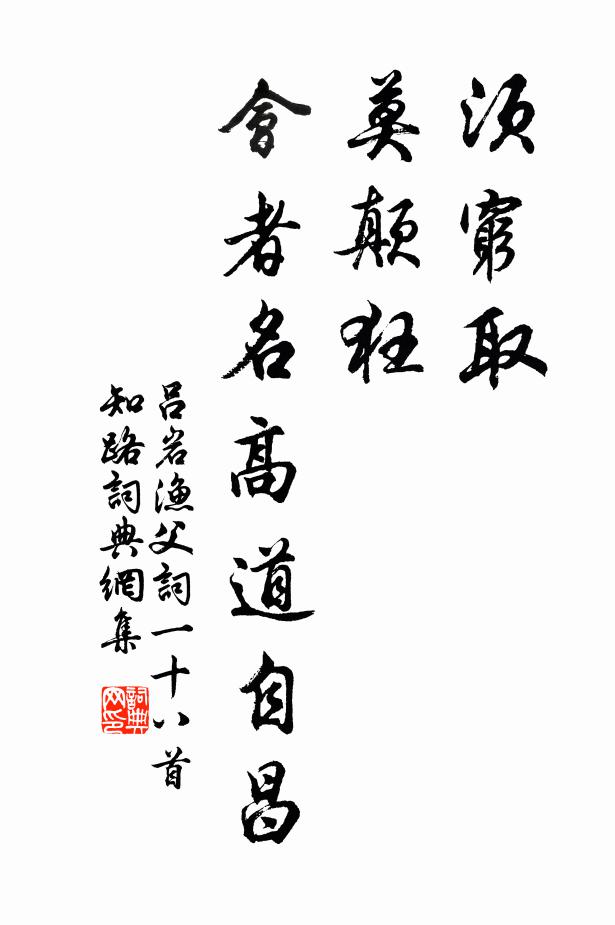 須窮取
莫顛狂
會者名高道自昌
呂岩漁父詞一十八首
知路詞典網集
詞典
网印